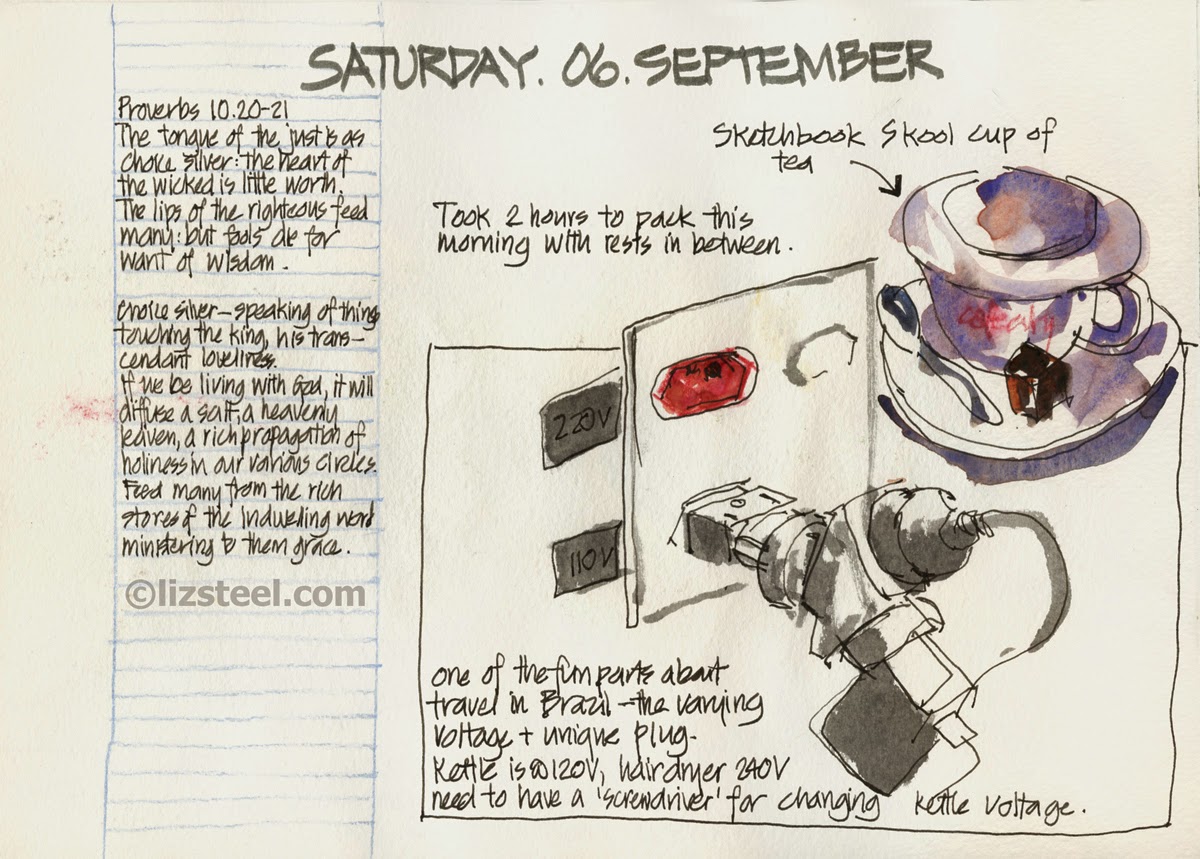 SATURDAY. 06. SEPTEMBER
Proverbs 10.20-21
The tongue of the just is as
choice silver: the heart of
the wicked is little worth.
The lips of the righteous feed
many: but fools die for
want of wisdom.
Choice silver - speaking of things
touching the king, his trans-
cendant loveliness.
If we be living with God, it will
diffuse a salt, a heavenly
leaven, a rich propagation of
holiness in our various circles.
Feed many from the rich
stores of the Indwelling word
ministering to them grace.
©lizsteel.com
Sketchbook Skool cup of
tea
Took 2 hours to pack this
morning with rests in between.
220V
110V
one of the fun parts about
travel in Brazil - the varying
voltage + unique plug.
Kettle is 120V, hairdryer 240V
need to have a 'screwdriver' for changing kettle voltage.